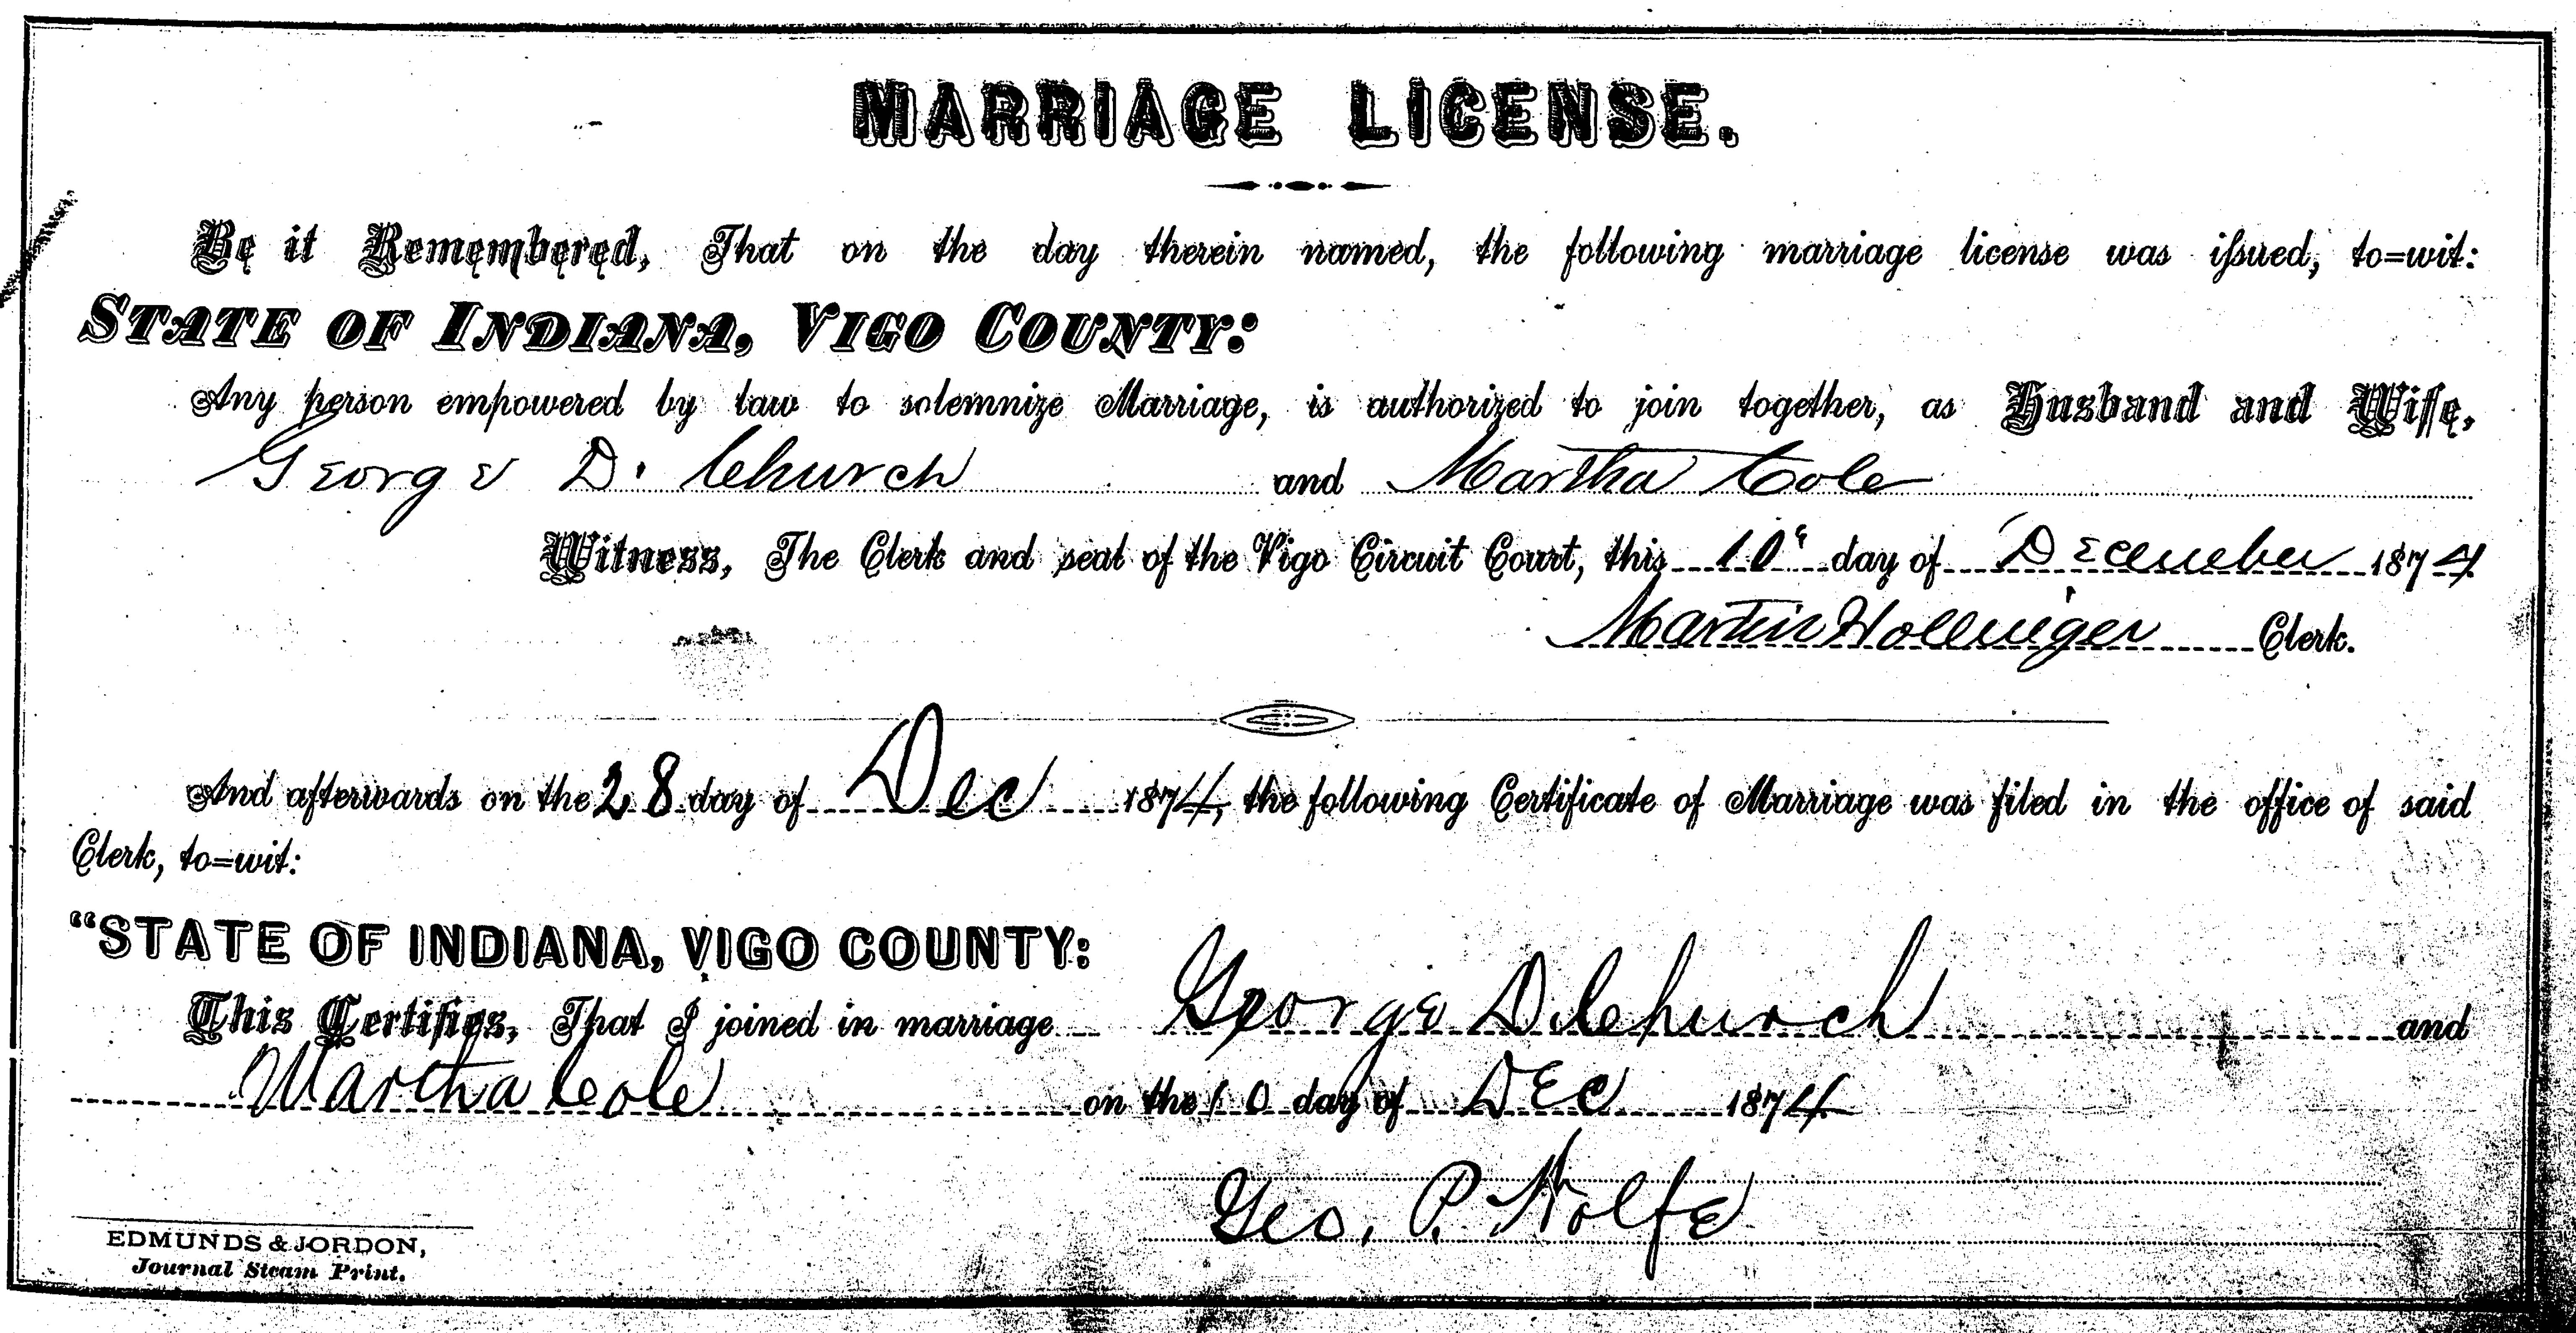 MARRIAGE LICENSE.
Be it Remembered, That on the day therein named, the following marriage license was issued, to=wit:
STATE OF INDIANA, VIGO COUNTY:
Any person empowered by law to solemnize Marriage, is authorized to join together, as Husband and Wife,
George D. Church and Martha Cole
Witness, The Clerk and seal of the Vigo Circuit Court, this 10" day of December 1874
Martin Hollinger Clerk.
And afterwards on the 28 day of Dec 1874, the following Certificate of Marriage was filed in the office of said
Clerk, to=wit:
"STATE OF INDIANA, VIGO COUNTY:
This Certifies, That I joined in marriage George D. Church and
Martha Cole on the 10 day of Dec 1874
Geo. P.
EDMUNDS & JORDON,
Journal Steam Print.